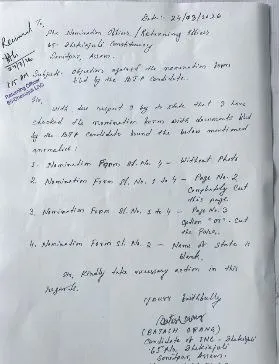 Date:- 24/03/2026
Received
To,
The Nomination Officer / Returning Officer
65- Dhekiajuli Constituency
Sonitpur, Assam.
Subject:- Objection against the nomination form
filed by the BJP Candidate.
Sir,
With due respect I beg to state that I have
checked the nomination form with documents filed
by the BJP Candidate found the below mentioned
anomalies:
1. Nomination Form Sl. No. 4 - Without Photo
2. Nomination Form Sl. No. 1 to 4 - Page No. 2
Completely Cut
this page.
3. Nomination Form Sl. No. 1 to 4 - Page No. 3
Option "or" - Cut
the Para.
4. Nomination Form Sl. No. 2 - Name of State is
blank.
Sir, Kindly take necessary action in this
regards.
Yours faithfully
(BATASH ORANG)
Candidate of INC - Dhekiajuli
65 No, Dhekiajuli
Sonitpur, Assam.